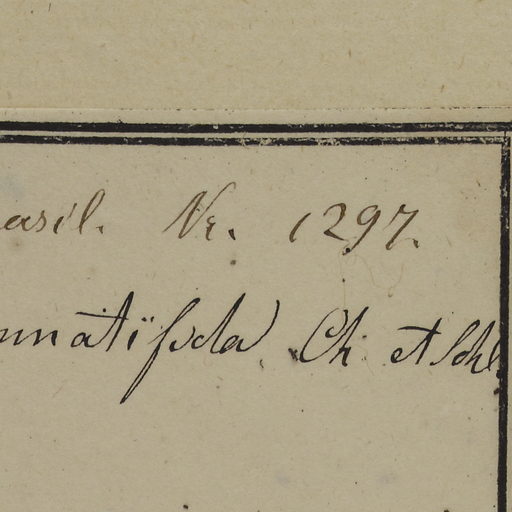 asil. Nr. 1297.
nnatifida Ch et Schl.